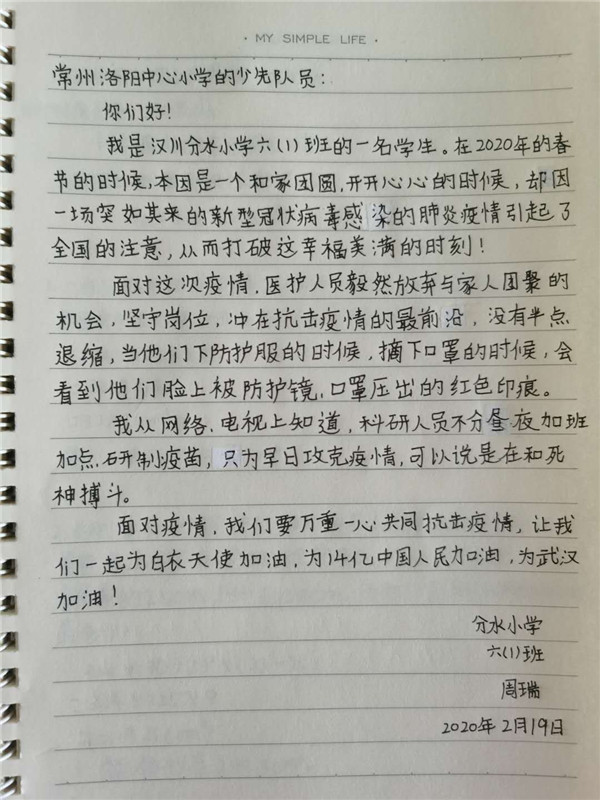 · MY SIMPLE LIFE ·
常州洛阳中心小学的少先队员：
你们好！
我是汉川分水小学六(1)班的一名学生。在2020年的春
节的时候,本因是一个和家团圆,开开心心的时候，却因
一场突如其来的新型冠状病毒感染的肺炎疫情引起了
全国的注意，从而打破这幸福美满的时刻！
面对这次疫情,医护人员毅然放弃与家人团聚的
机会，坚守岗位，冲在抗击疫情的最前沿，没有半点
退缩，当他们下防护服的时候，摘下口罩的时候，会
看到他们脸上被防护镜,口罩压出的红色印痕。
我从网络、电视上知道，科研人员不分昼夜加班
加点,研制疫苗，只为早日攻克疫情,可以说是在和死
神搏斗。
面对疫情，我们要万重一心共同抗击疫情，让我
们一起为白衣天使加油，为14亿中国人民加油，为武汉
加油！
分水小学
六(1)班
周瑞
2020年2月19日